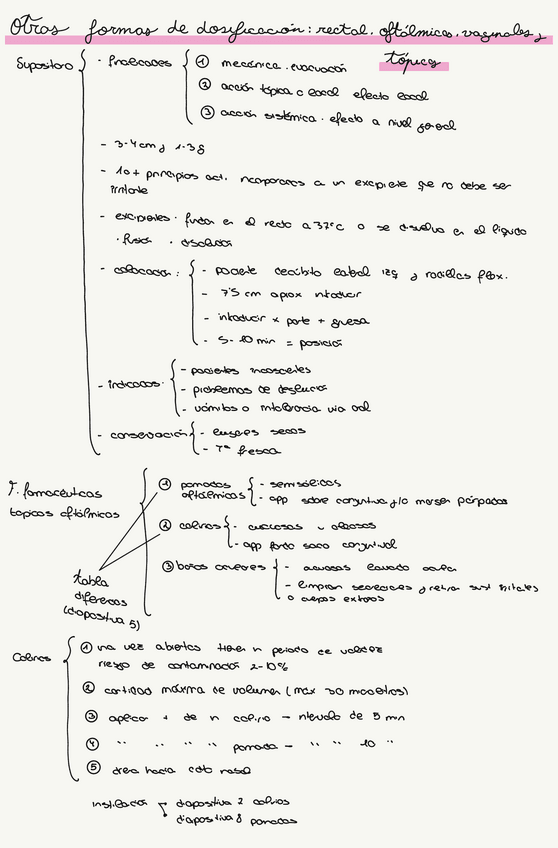 Otras formas de dosificación: rectal, oftálmica, vaginales y
tópicos
Supositorio
· Finalidades
① mecánica · evacuación
② acción tópica o local efecto local
③ acción sistémica · efecto a nivel general
- 3-4 cm y 1-3 g
- 1 o + principios act. incorporados a un excipiente que no debe ser
irritante
- excipientes · funden en el recto a 37°C o se disuelve en el líquido
· fusión · disolución
- colocación:
- paciente decúbito lateral izq y rodillas flex.
- 7'5 cm aprox introducir
- introducir x parte + gruesa
- 5-10 min = posición
- indicados
- pacientes inconscientes
- problemas de deglución
- vómitos o intolerancia vía oral
- conservación
- lugares secos
- Tª fresca
F. farmacéuticas
tópicas oftálmicos
① pomadas
oftálmicas
- semisólidas
- app sobre conjuntiva y/o margen párpados
② colirios
- acuosas u oleosas
- app fondo saco conjuntival
③ baños oculares
- acuosas lavado ocular
- limpian secreciones y retiran sust irritantes
o cuerpos extraños
tabla
diferencias
(diapositiva 5)
Colirios
① una vez abiertos tienen periodo de validez
riesgo de contaminación 2-10%
② cantidad máxima de volumen (max 30 microlitros)
③ aplicar + de un colirio - intervalo de 5 min
④ " " " " pomada - " " 10 "
⑤ drena hacia cdto nasal
instilación
diapositiva 7 colirios
diapositiva 8 pomadas